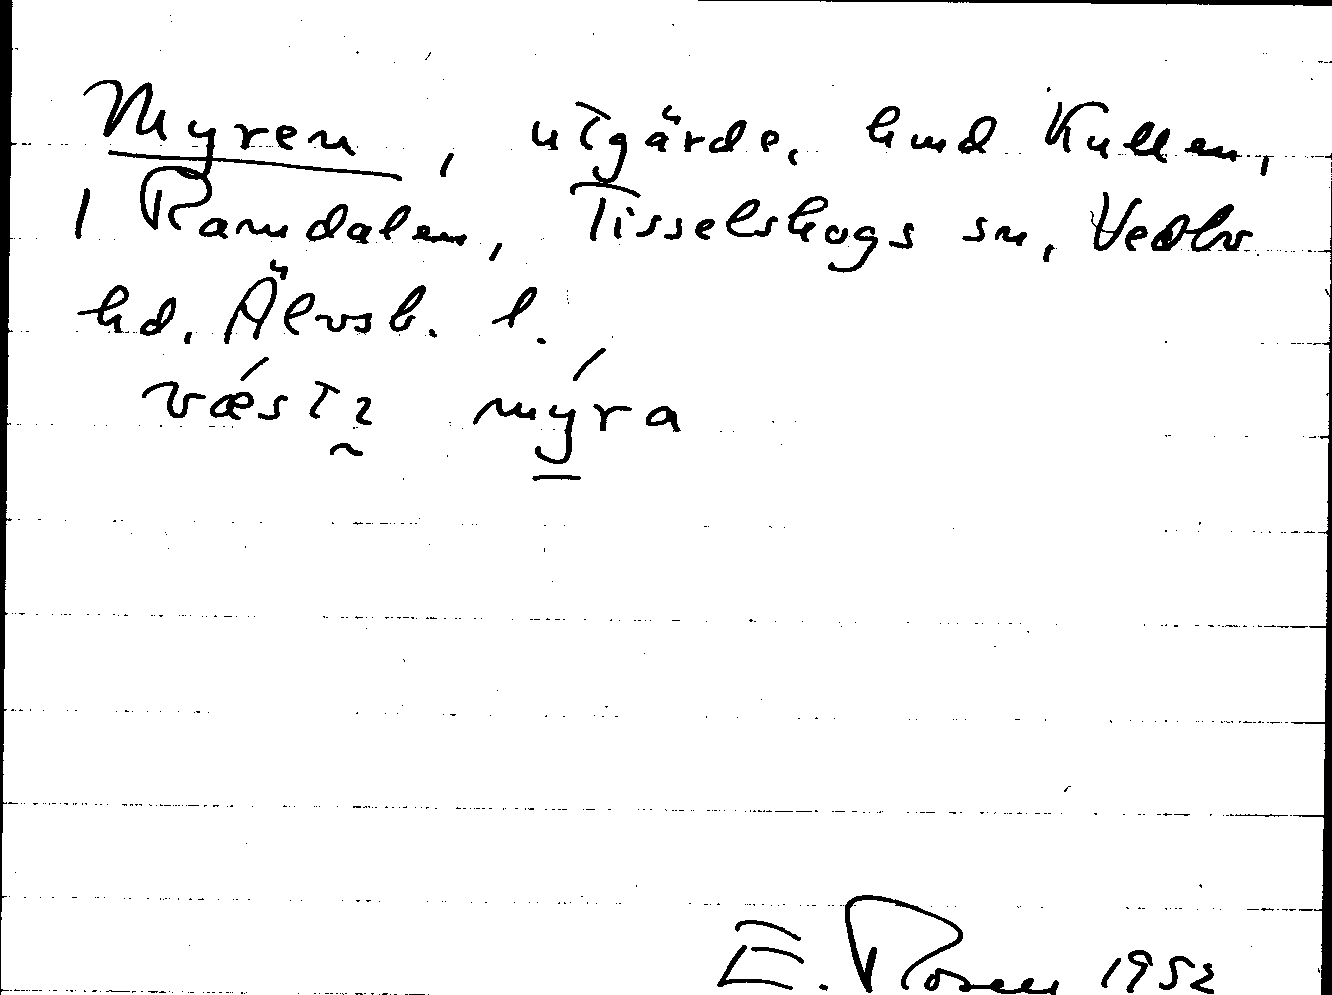 Myren, utgärde, hmd Kullen,
1 Ramdalen, Tisselskogs sn, Vedbo
hd. Älvsb. l.
vǽstɿ mýra
E. Rosen 1952